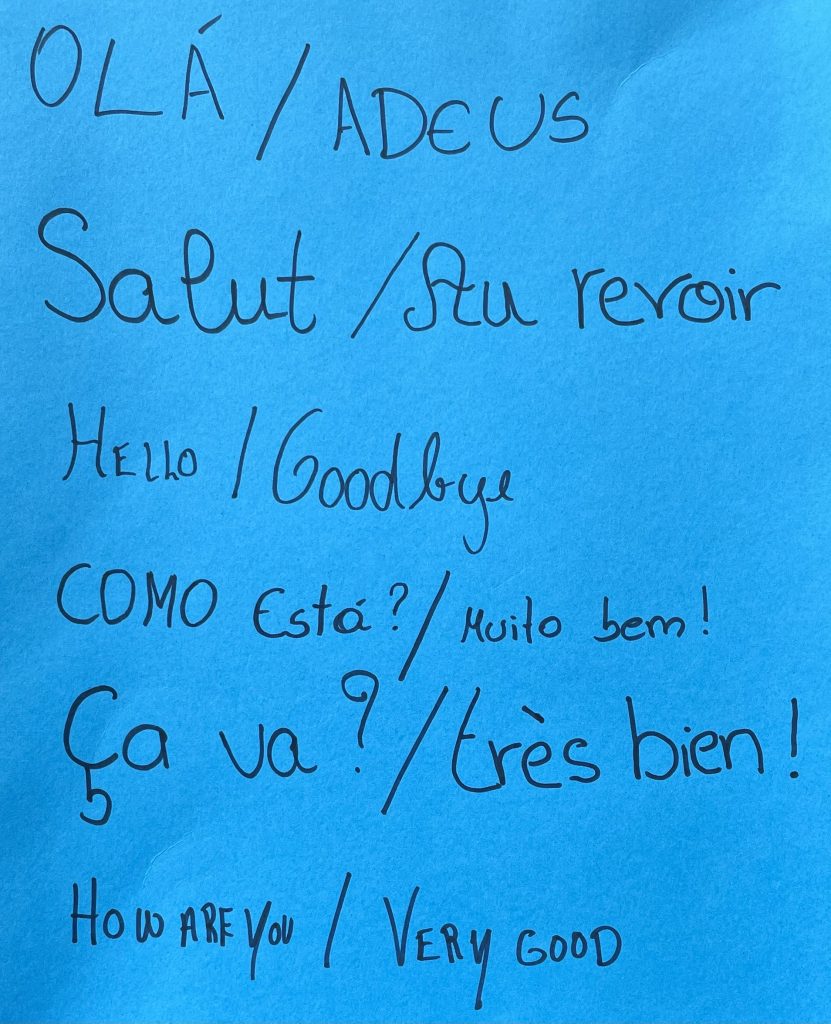 OLÁ / ADEUS
Salut / Au revoir
HELLO / Goodbye
COMO Está? / Muito bem!
Ça va? / très bien!
HOW ARE YOU / VERY GOOD